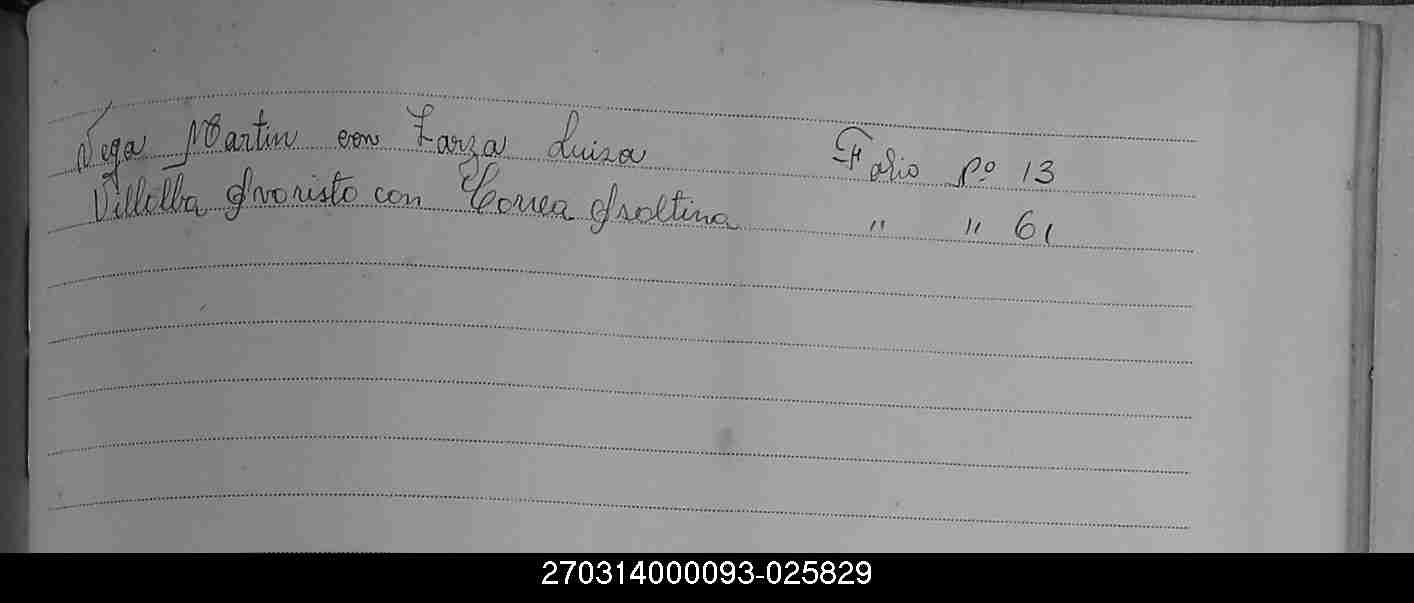 Vega Martin con Zarza Luisa Folio Nº 13
Villalba Evaristo con Correa Isoltina " " 61
270314000093-025829